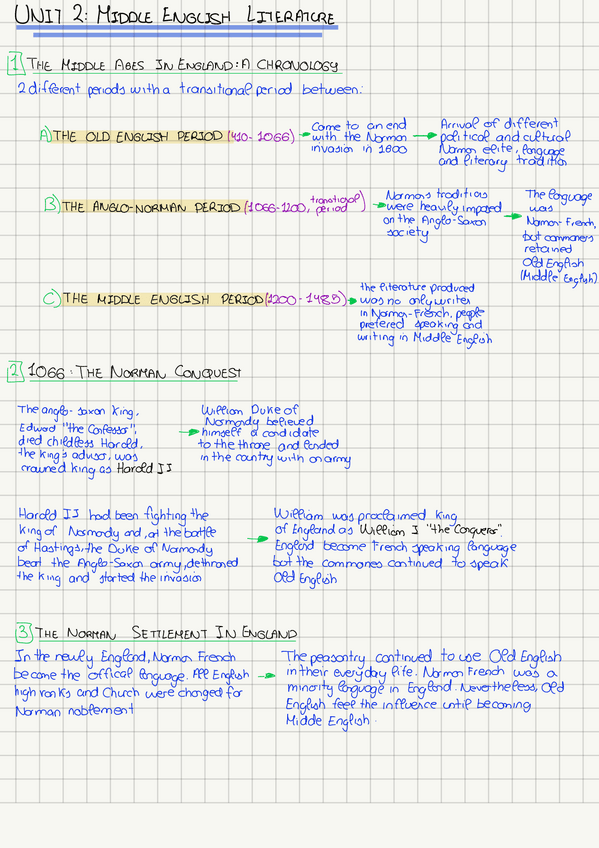 UNIT 2: MIDDLE ENGLISH LITERATURE
1 THE MIDDLE AGES IN ENGLAND: A CHRONOLOGY
2 different periods with a transitional period between:
A) THE OLD ENGLISH PERIOD (410-1066)
Come to an end
with the Norman
invasion in 1600
Arrival of different
political and cultural
Norman elite, language
and literary tradition
B) THE ANGLO-NORMAN PERIOD (1066-1200, transitional
period)
Normans traditions
were heavily imposed
on the Anglo-Saxon
society
The language
was
Norman-French,
but commoners
retained
Old English
(Middle English)
C) THE MIDDLE ENGLISH PERIOD (1200-1485)
the literature produced
was no only writen
in Norman-French, people
prefered speaking and
writing in Middle English
2 1066: THE NORMAN CONQUEST
The anglo-saxon King,
Edward "the Confessor",
died childless Harold,
the king's advisor, was
crowned king as Harold II
William Duke of
Normandy believed
himself a candidate
to the throne and landed
in the country with an army
Harold II had been fighting the
king of Normandy and, at the battle
of Hastings, the Duke of Normandy
beat the Anglo-Saxon army, dethroned
the king and started the invasion
William was proclaimed king
of England as William I "the Conqueror".
England become French speaking language
but the commones continued to speak
Old English
3 THE NORMAN SETTLEMENT IN ENGLAND
In the newly England, Norman French
became the offical language. All English
high ranks and Church were changed for
Norman noblement
The peasantry continued to use Old English
in their everyday life. Norman French was a
minority language in England. Nevertheless, Old
English feel the influence until becoming
Midde English.